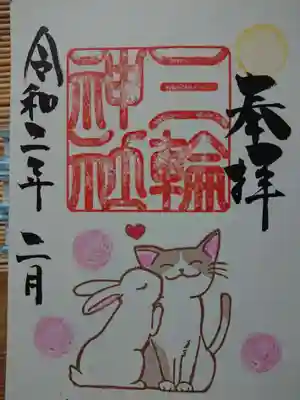 奉拝
三輪
神社
令和二年 二月